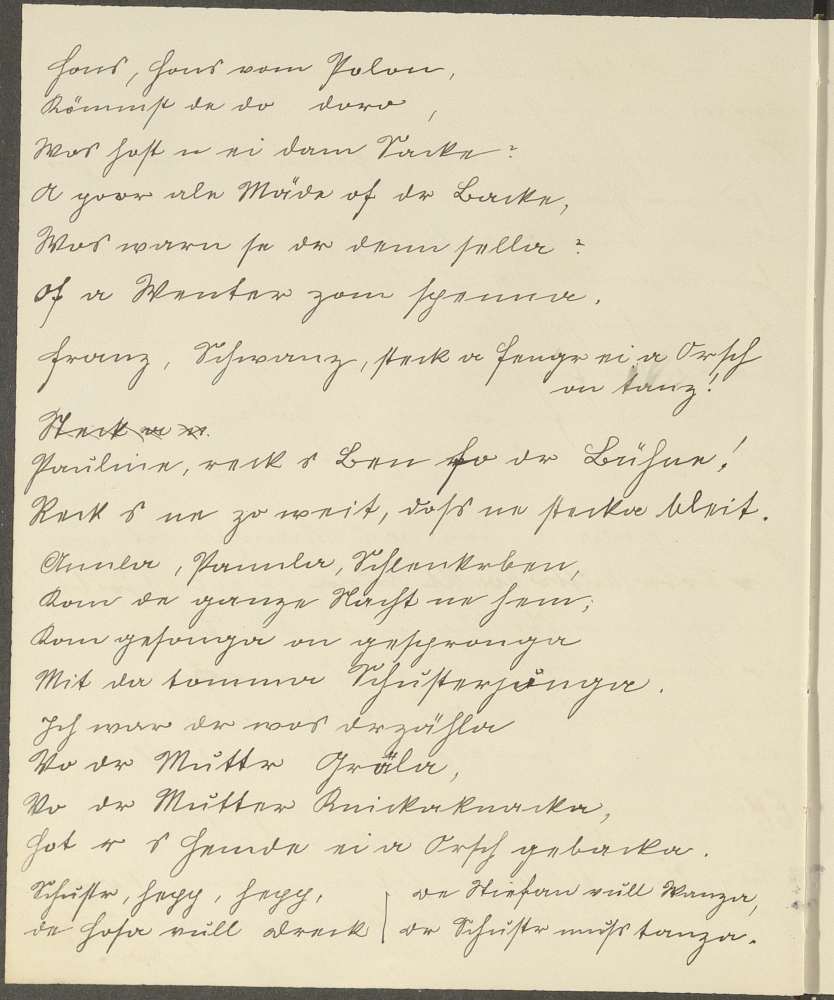 Hons, Hons vom Polon,
Kömmst de do doro,
Wos host n ei dam Sacke?
A poor ale Mäde of dr Backe,
Wos warn se dr denn sella?
Of a Wenter zom spenna.
Franz, Schwanz, steck a Fengr ei a Orsch
on tanz!
Steck a n
Pauline, reck s Ben fo dr Bühne!
Reck s ne zo weit, doss ne stecka bleit.
Annla, Pannla, Schlenkrben,
Kom de ganze Nacht ne hem;
Kom gesonga on gespronga
Mit da tomma Schusterjunga.
Ich war dr wos drzähla
Vo dr Muttr Gräla,
Vo dr Mutter Knickaknacka,
Hot r s Hemde ei a Orsch gebacka.
Schustr, hepp, hepp, | de Stiefan vull Wanza,
de Hosa vull Dreck | dr Schustr muss tanza.